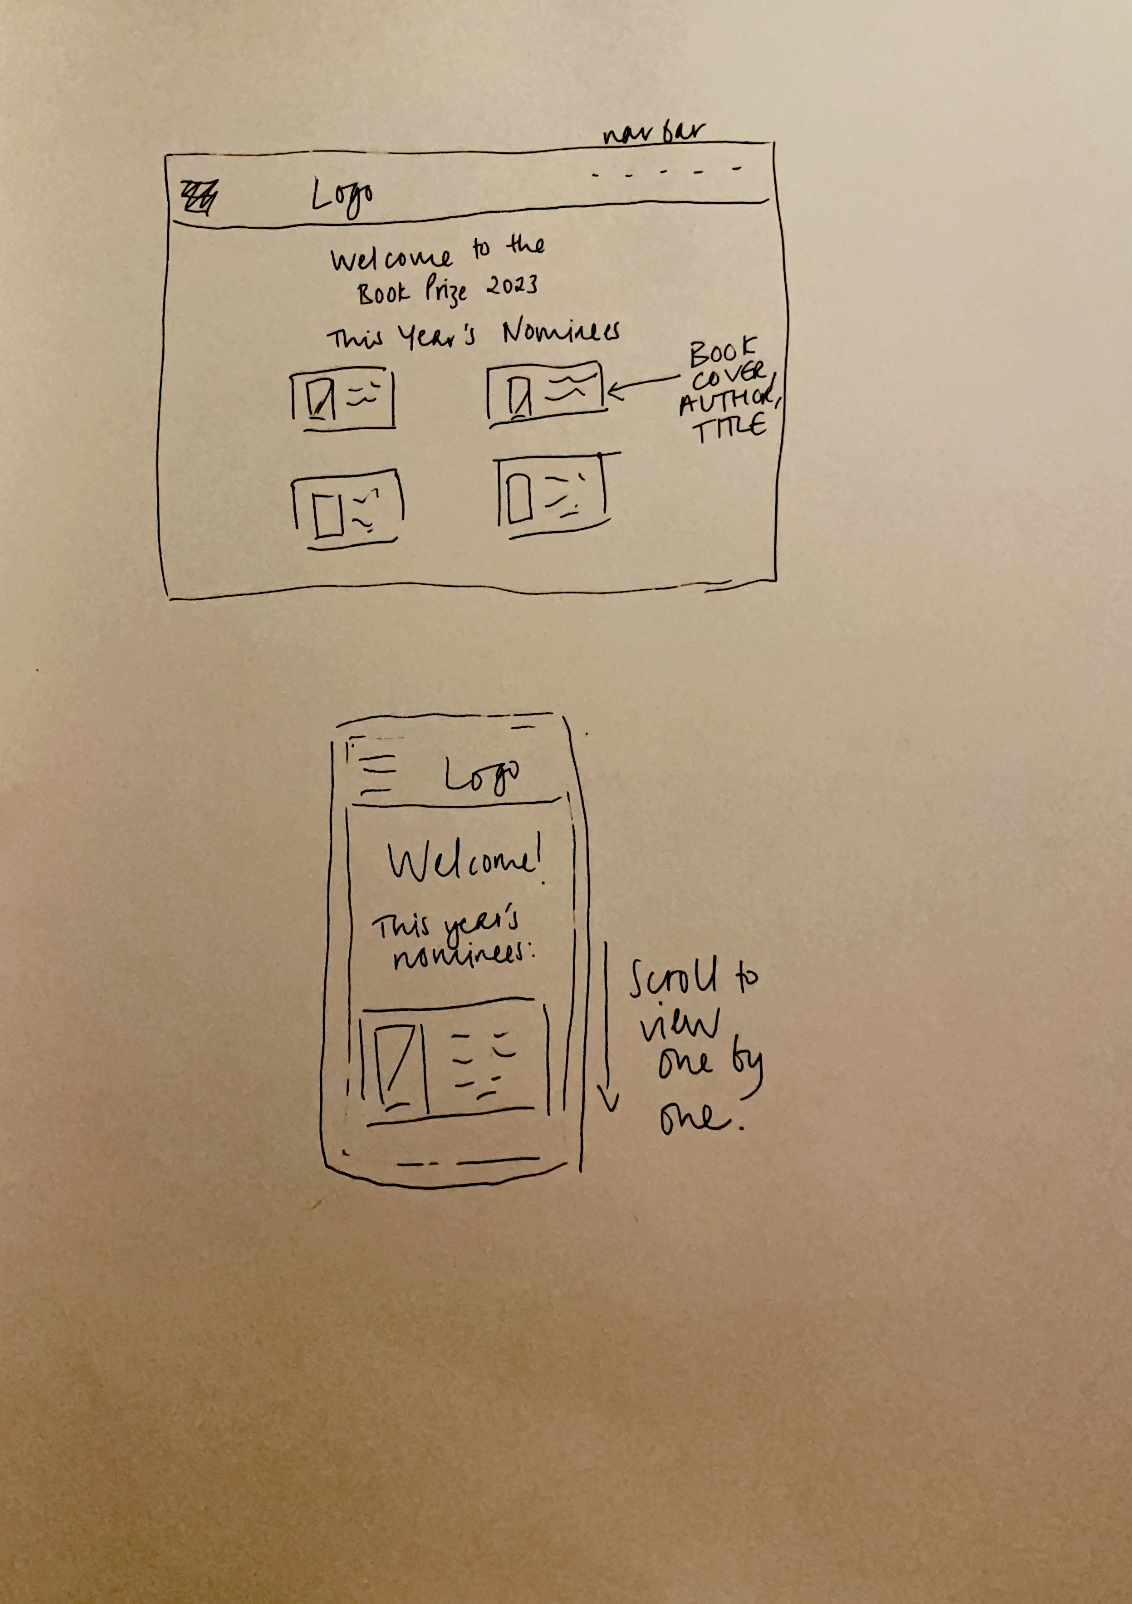 nav bar
Logo
Welcome to the
Book Prize 2023
This Year's Nominees
BOOK
COVER,
AUTHOR,
TITLE
Logo
Welcome!
This year's
nominees:
Scroll to
view
one by
one.